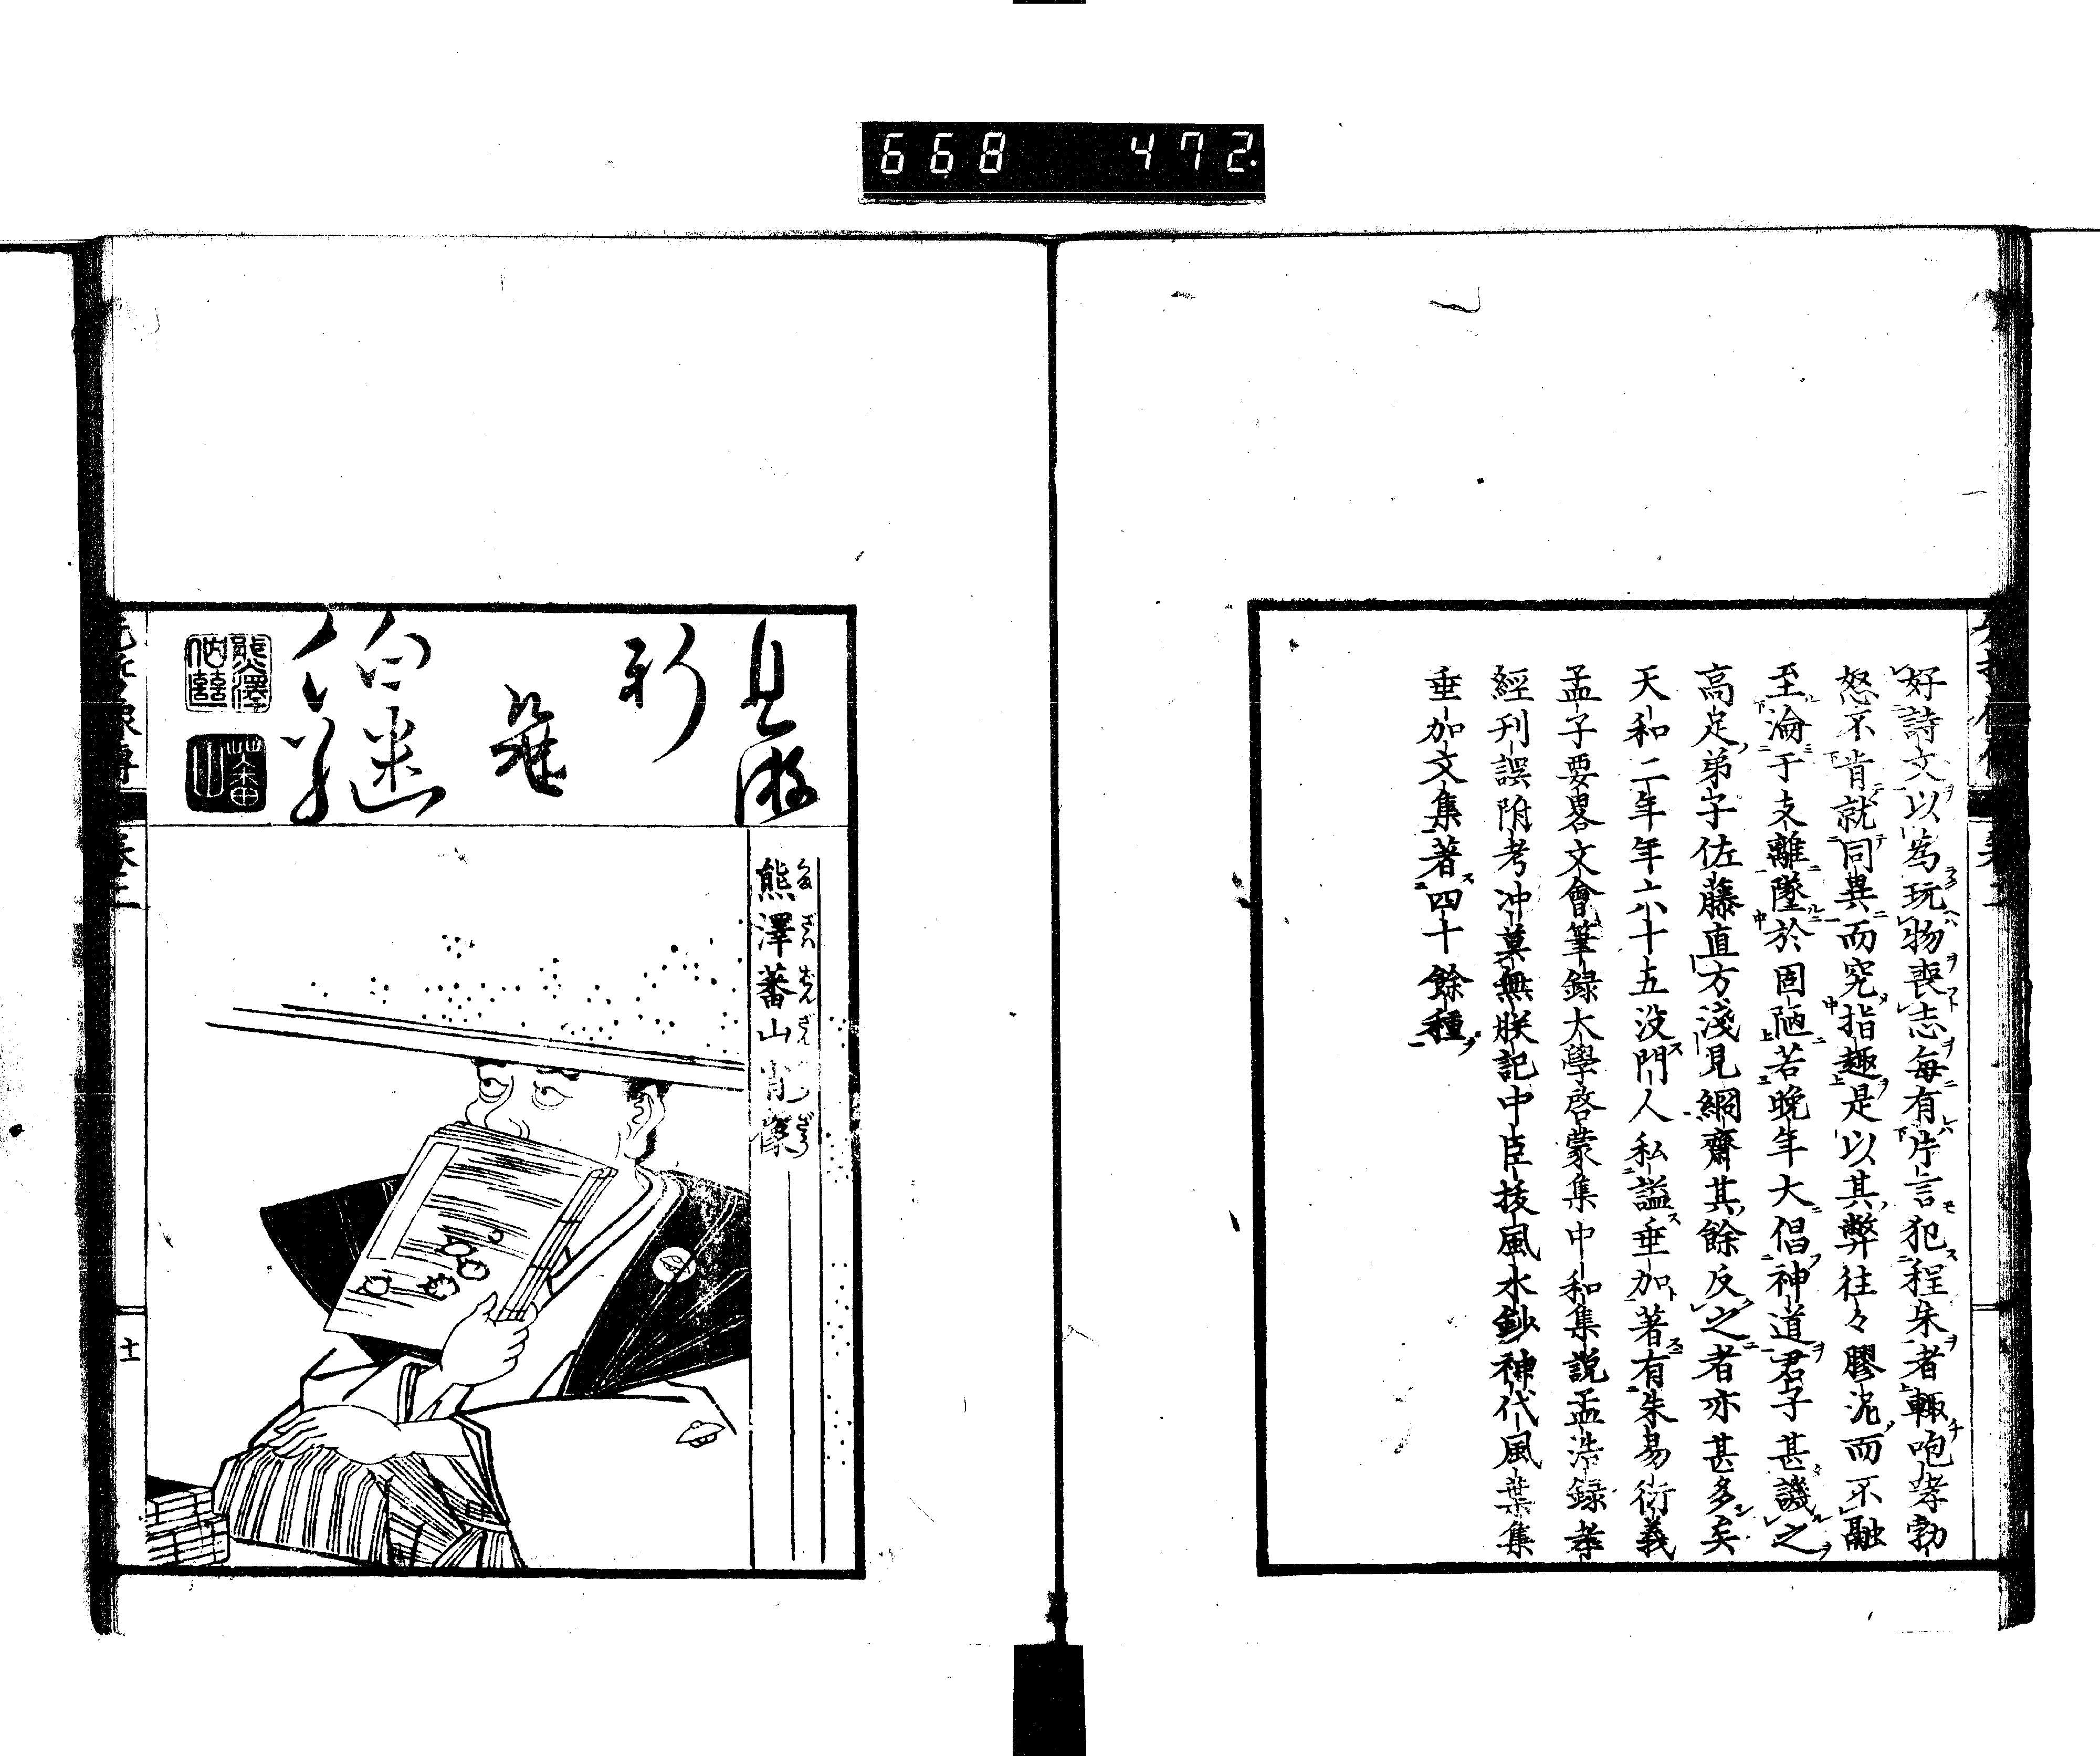 668 472
好詩文以為玩物喪志每有片言犯程朱者輙咆哮勃
怒不肯就同異而究指趣是以其弊往々膠泥而不融
至淪于支離墜於固陋若晚年大倡神道君子甚譏之
高足弟子佐藤直方淺見絅齋其餘反之者亦甚多矣
天和二年年六十五没門人私謚垂加著有朱易衍義
孟子要畧文會筆録大學啓蒙集中和集説孟浩録孝
經刊誤附考冲莫無朕記中臣祓風水鈔神代風葉集
垂加文集著四十餘種
熊澤
伯繼
蕃山
熊澤蕃山肖像
くまざはばんざんしやうざう
十一